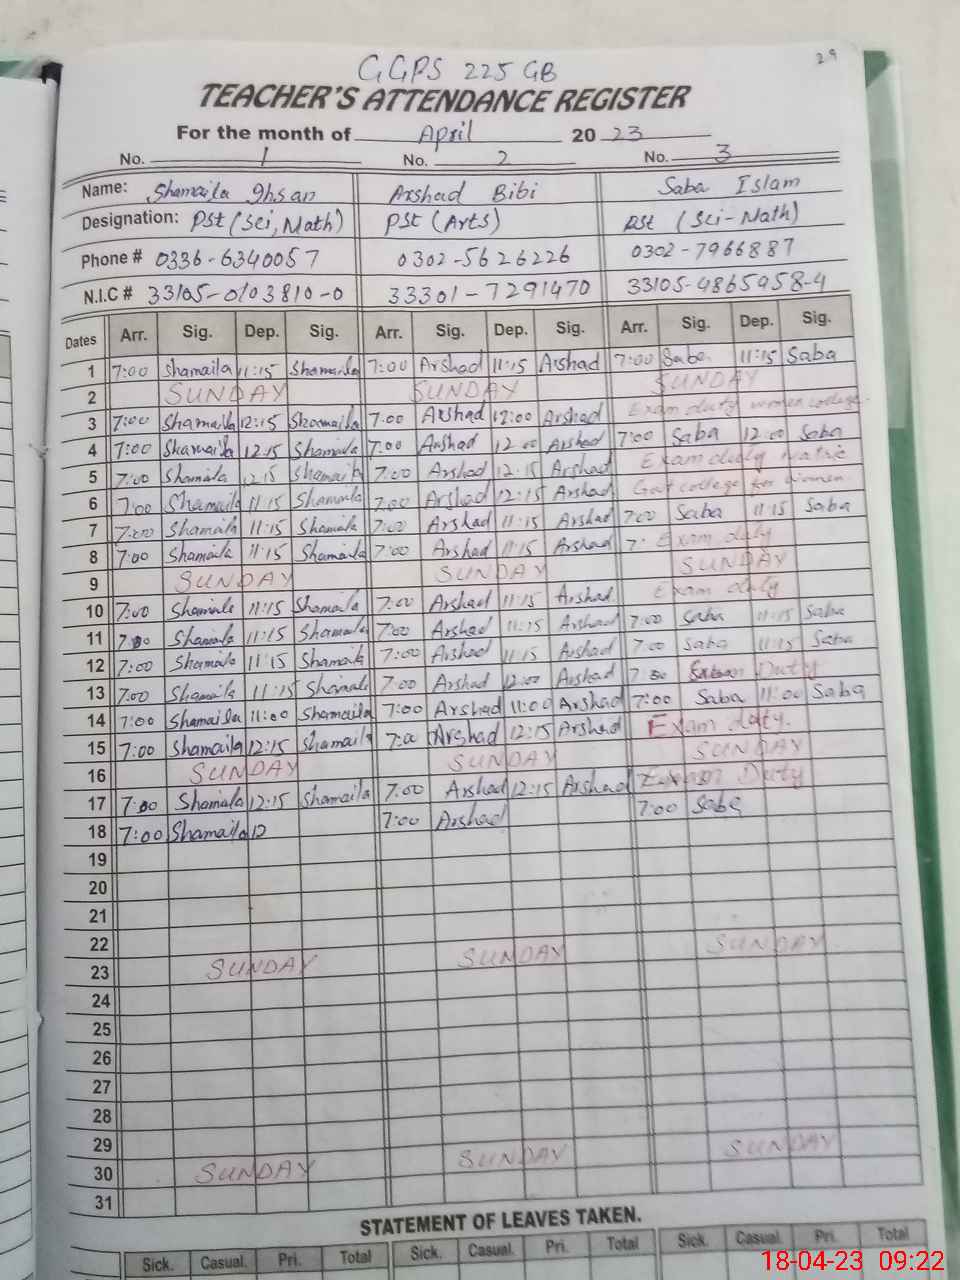 29
GGPS 225 GB
TEACHER'S ATTENDANCE REGISTER
For the month of April 2023
No. 1 No. 2 No. 3
Name: Shamaila Ihsan Arshad Bibi Saba Islam
Designation: PSt (Sci, Math) PSt (Arts) PSt (Sci-Math)
Phone # 0336-6340057 0302-5626226 0302-7966887
N.I.C # 33105-0103810-0 33301-7291470 33105-4865958-4
Dates Arr. Sig. Dep. Sig. Arr. Sig. Dep. Sig. Arr. Sig. Dep. Sig.
1 7:00 Shamaila 11:15 Shamaila 7:00 Arshad 11:15 Arshad 7:00 Saba 11:15 Saba
2 SUNDAY SUNDAY SUNDAY
3 7:00 Shamaila 12:15 Shamaila 7:00 Arshad 12:00 Arshad Exam duty women college.
4 7:00 Shamaila 12:15 Shamaila 7:00 Arshad 12:00 Arshad 7:00 Saba 12:00 Saba
5 7:00 Shamaila 12:15 Shamaila 7:00 Arshad 12:15 Arshad Exam duty Matric
6 7:00 Shamaila 11:15 Shamaila 7:00 Arshad 12:15 Arshad Govt college for women
7 7:00 Shamaila 11:15 Shamaila 7:00 Arshad 11:15 Arshad 7:00 Saba 11:15 Saba
8 7:00 Shamaila 11:15 Shamaila 7:00 Arshad 11:15 Arshad 7: Exam duty
9 SUNDAY SUNDAY SUNDAY
10 7:00 Shamaila 11:15 Shamaila 7:00 Arshad 11:15 Arshad Exam duty
11 7:00 Shamaila 11:15 Shamaila 7:00 Arshad 11:15 Arshad 7:00 Saba 11:15 Saba
12 7:00 Shamaila 11:15 Shamaila 7:00 Arshad 11:15 Arshad 7:00 Saba 11:15 Saba
13 7:00 Shamaila 11:15 Shamaila 7:00 Arshad 12:00 Arshad 7:00 Exam Duty
14 7:00 Shamaila 11:00 Shamaila 7:00 Arshad 11:00 Arshad 7:00 Saba 11:00 Saba
15 7:00 Shamaila 12:15 Shamaila 7:00 Arshad 12:15 Arshad Exam duty.
16 SUNDAY SUNDAY SUNDAY
17 7:00 Shamaila 12:15 Shamaila 7:00 Arshad 12:15 Arshad Exam Duty
18 7:00 Shamaila 12 7:00 Arshad 7:00 Saba
19
20
21
22
23 SUNDAY SUNDAY SUNDAY
24
25
26
27
28
29
30 SUNDAY SUNDAY SUNDAY
31
STATEMENT OF LEAVES TAKEN.
Sick. Casual. Pri. Total Sick. Casual. Pri. Total Sick. Casual. Pri. Total
18-04-23 09:22